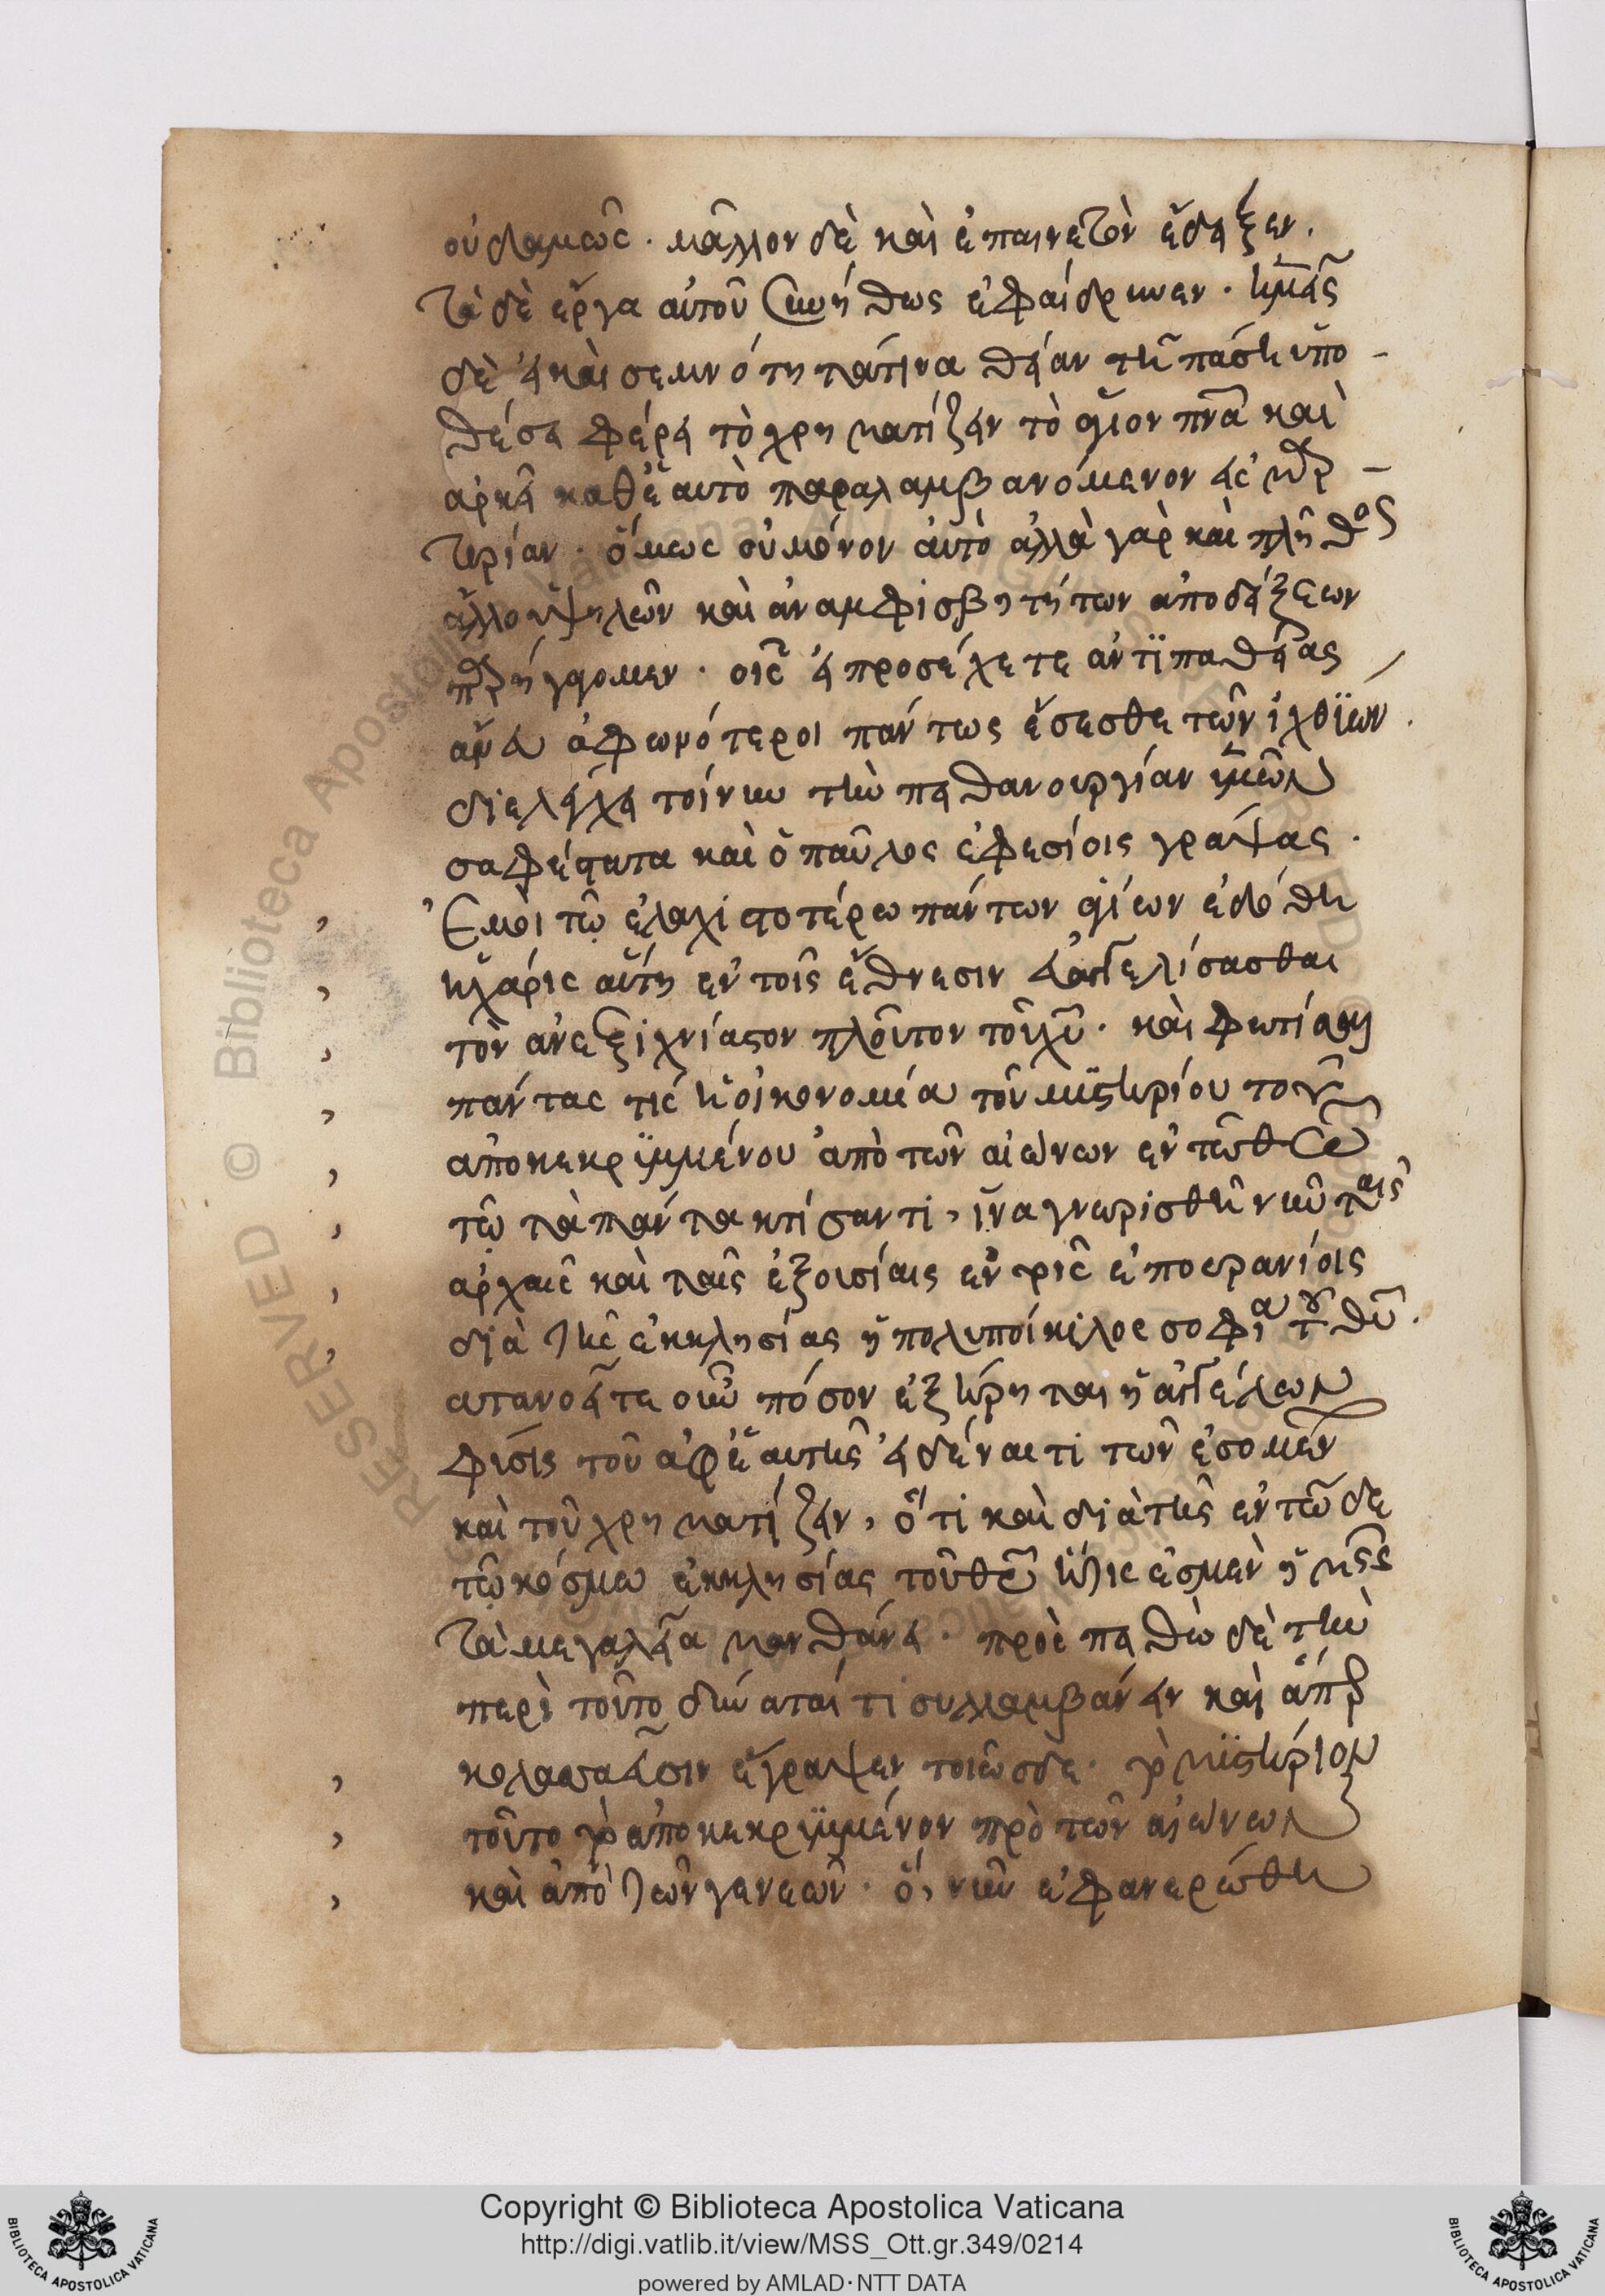 οὐδαμῶς · μᾶλλον δὲ καὶ ἐπαινετὸν ἔδειξεν.
Τὰ δὲ ἔργα αὐτοῦ συνήθως ἐφαίδρυνεν · ἡμᾶς
δὲ εἰ καὶ σεμνότητά τινα θείαν τῆ πάση ὑπο-
θέσει φέρει τὸ χρηματίζειν τὸ ἅγιον πνα καὶ
ἀρκεῖ καθ' ἑαυτὸ παραλαμβανόμενον εἰς μρ-
τυρίαν · ὅμως οὐ μόνον αὐτὸ ἀλλὰ γὰρ καὶ πλῆθος
ἄλλο ὑψηλῶν καὶ ἀναμφισβητήτων ἀποδείξεων
παρήγαγομεν · οἷς εἰ προσέχετε ἀντιπαθείας
ἄνευ ἀφωνότεροι πάντως ἔσεσθε τῶν ἰχθύων ·
διελέγχει τοίνυν τὴν πειθανουργίαν ὑμῶν
σαφέστατα καὶ ὁ παῦλος ἐφεσίοις γράψας ·
Ἐμοὶ τῶ ἐλαχιστοτέρω πάντων ἁγίων ἐδόθη
ἡ χάρις αὕτη ἐν τοῖς ἔθνεσιν εὐαγγελίσασθαι
τὸν ἀνεξιχνίαστον πλοῦτον τοῦ χυ · καὶ φωτίσαι
πάντας τίς ἡ οἰκονομία τοῦ μυστηρίου τοῦ
ἀποκεκρυμμένου ἀπὸ τῶν αἰώνων ἐν τῶ θεῶ
τῶ τὰ πάντα κτίσαντι, ἵνα γνωρισθῆ νῦν ταῖς
ἀρχαῖς καὶ ταῖς ἐξουσίαις ἐν τοῖς ἐπουρανίοις
διὰ τῆς ἐκκλησίας ἡ πολυποίκιλος σοφία τοῦ θυ ·
κατανοεῖτε οὖν πόσον ἐξήρηται ἡ ἀγγέλων
φύσις τοῦ ἀφ' ἑαυτῆς εἰδέναι τι τῶν ἐσομέν
καὶ τοῦ χρηματίζειν, ὅτι καὶ διὰ τῆς ἐν τῶδε
τῶ κόσμω ἐκκλησίας τοῦ θεοῦ ἥτις ἐσμὲν ἡμεῖς
τὰ μεγαλεῖα μανθάνει · πρὸς πειθὼ δὲ τὴν
περὶ τοῦτο δύναταί τι συλλαμβάνειν καὶ ἅπερ
κολασσαεῦσιν ἔγραψεν τοιῶσδε · τὸ μυστήριον
τοῦτο τὸ ἀποκεκρυμμένον πρὸ τῶν αἰώνων
καὶ ἀπὸ τῶν γενεῶν · ὅ, νῦν ἐφανερώθη
Copyright © Biblioteca Apostolica Vaticana
http://digi.vatlib.it/view/MSS_Ott.gr.349/0214
powered by AMLAD·NTT DATA